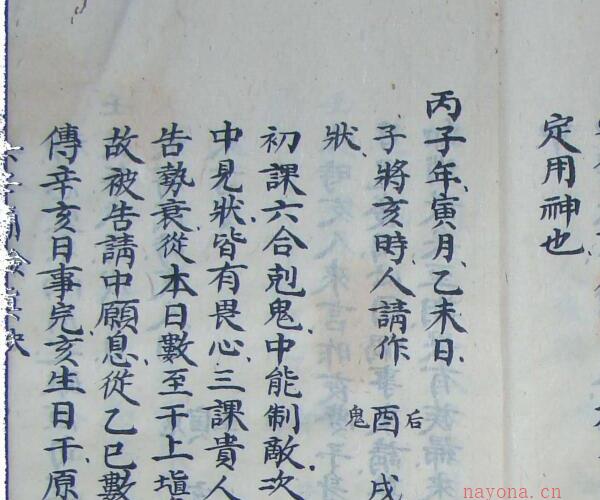 定用神也
丙子年寅月乙未日
子將亥時人請作 酉 戌
后
鬼
狀
初課六合剋鬼中能制敵次
中見狀皆有畏心三課貴人
告勢衰從本日數至干上塡
故被告請中願息從乙巳數
傳辛亥日事完亥生日干原
nayona.cn